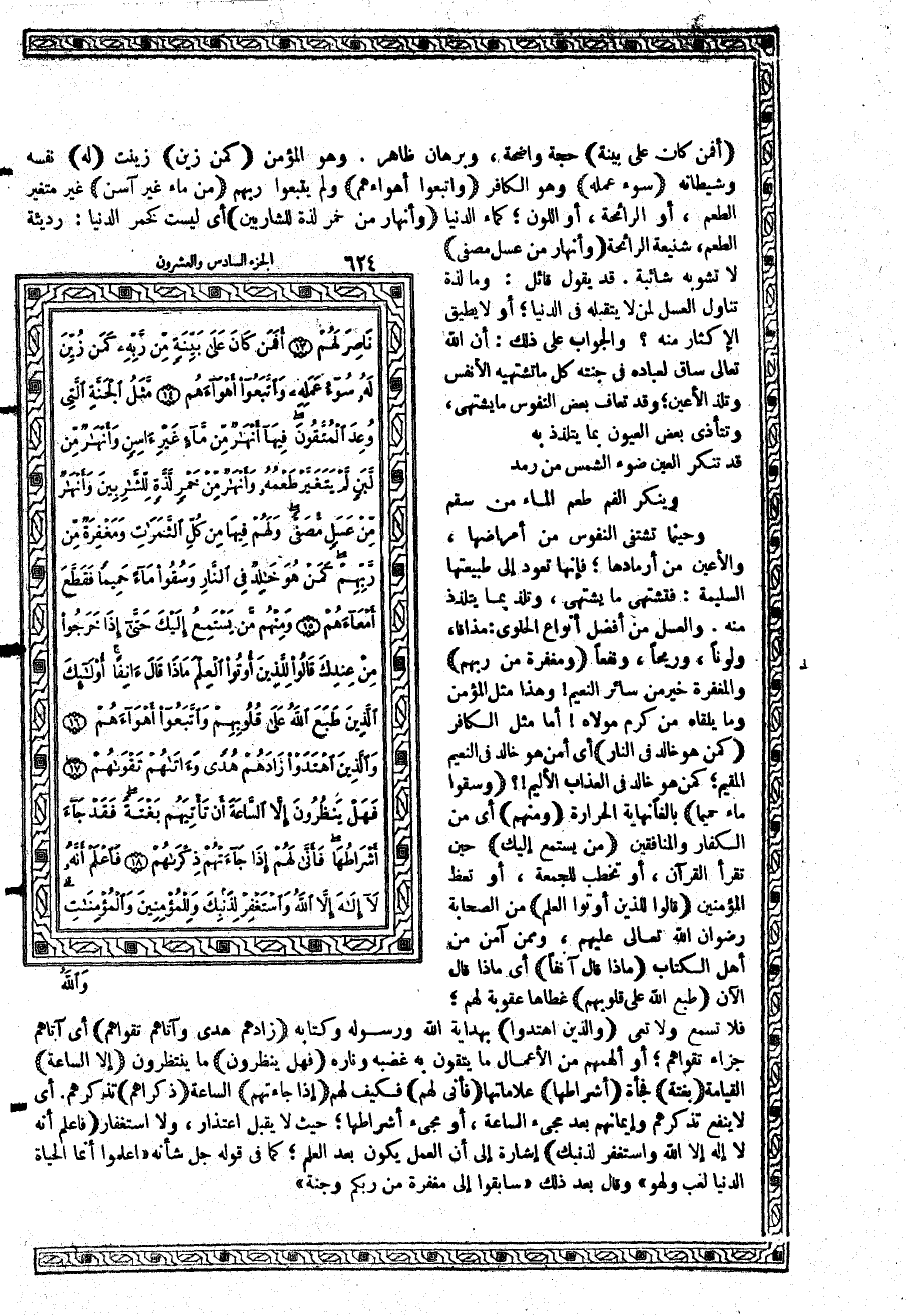 (أفمن كان على بينة) حجة واضحة ، وبرهان ظاهر . وهو المؤمن (كمن زين) زينت (له) نفسه
وشيطانه (سوء عمله) وهو الكافر (واتبعوا أهواءهم) ولم يتبعوا ربهم (من ماء غير آسن) غير متغير
الطعم ، أو الرائحة ، أو اللون ؛ كماء الدنيا (وأنهار من خمر لذة للشاربين) أى ليست كخمر الدنيا : رديئة
الطعم، شنيعة الرائحة (وأنهار من عسل مصفى)
لا تشوبه شائبة . قد يقول قائل : وما لذة
تناول العسل لمن لا يتقبله فى الدنيا ؛ أو لا يطيق
الإكثار منه ؟ والجواب على ذلك : أن الله
تعالى ساق لعباده فى جنته كل ما تشتهيه الأنفس
وتلذ الأعين؛ وقد تعاف بعض النفوس ما يشتهى،
وتتأذى بعض العيون بما يتلذذ به
قد تنكر العين ضوء الشمس من رمد
وينكر الفم طعم الماء من سقم
وحينما تشتفى النفوس من أمراضها ،
والأعين من أرمادها ؛ فإنها تعود إلى طبيعتها
السليمة : فتشتهى ما يشتهى ، وتلذ بما يتلذذ
منه . والعسل من أفضل أنواع الحلوى: مذاقا،
ولوناً ، وريحاً ، ونفعاً (ومغفرة من ربهم)
والمغفرة خير من سائر النعيم! وهذا مثل المؤمن
وما يلقاه من كرم مولاه ! أما مثل الكافر
(كمن هو خالد فى النار) أى أمن هو خالد فى النعيم
المقيم؛ كمن هو خالد فى العذاب الأليم!؟ (وسقوا
ماء حميما) بالغاً نهاية الحرارة (ومنهم) أى من
الكفار والمنافقين (من يستمع إليك) حين
تقرأ القرآن ، أو تخطب للجمعة ، أو تعظ
المؤمنين (قالوا للذين أوتوا العلم) من الصحابة
رضوان الله تعالى عليهم ، وممن آمن من
أهل الكتاب (ماذا قال آنفاً) أى ماذا قال
الآن (طبع الله على قلوبهم) غطاها عقوبة لهم ؛
الجزء السادس والعشرون ٦٢٤
نَاصِرَ لَهُمْ ١٣ أَفَمَن كَانَ عَلَىٰ بَيِّنَةٍ مِّن رَّبِّهِۦ كَمَن زُيِّنَ
لَهُۥ سُوٓءُ عَمَلِهِۦ وَٱتَّبَعُوٓا۟ أَهْوَآءَهُم ١٤ مَّثَلُ ٱلْجَنَّةِ ٱلَّتِى
وُعِدَ ٱلْمُتَّقُونَ ۖ فِيهَآ أَنْهَٰرٌ مِّن مَّآءٍ غَيْرِ ءَاسِنٍ وَأَنْهَٰرٌ مِّن
لَّبَنٍ لَّمْ يَتَغَيَّرْ طَعْمُهُۥ وَأَنْهَٰرٌ مِّنْ خَمْرٍ لَّذَّةٍ لِّلشَّٰرِبِينَ وَأَنْهَٰرٌ
مِّنْ عَسَلٍ مُّصَفًّى ۖ وَلَهُمْ فِيهَا مِن كُلِّ ٱلثَّمَرَٰتِ وَمَغْفِرَةٌ مِّن
رَّبِّهِمْ ۖ كَمَنْ هُوَ خَٰلِدٌ فِى ٱلنَّارِ وَسُقُوا۟ مَآءً حَمِيمًا فَقَطَّعَ
أَمْعَآءَهُمْ ١٥ وَمِنْهُم مَّن يَسْتَمِعُ إِلَيْكَ حَتَّىٰٓ إِذَا خَرَجُوا۟
مِنْ عِندِكَ قَالُوا۟ لِلَّذِينَ أُوتُوا۟ ٱلْعِلْمَ مَاذَا قَالَ ءَانِفًا ۚ أُو۟لَٰٓئِكَ
ٱلَّذِينَ طَبَعَ ٱللَّهُ عَلَىٰ قُلُوبِهِمْ وَٱتَّبَعُوٓا۟ أَهْوَآءَهُمْ ١٦
وَٱلَّذِينَ ٱهْتَدَوْا۟ زَادَهُمْ هُدًى وَءَاتَىٰهُمْ تَقْوَىٰهُمْ ١٧
فَهَلْ يَنظُرُونَ إِلَّا ٱلسَّاعَةَ أَن تَأْتِيَهُم بَغْتَةً ۖ فَقَدْ جَآءَ
أَشْرَاطُهَا ۚ فَأَنَّىٰ لَهُمْ إِذَا جَآءَتْهُمْ ذِكْرَىٰهُمْ ١٨ فَٱعْلَمْ أَنَّهُۥ
لَآ إِلَٰهَ إِلَّا ٱللَّهُ وَٱسْتَغْفِرْ لِذَنۢبِكَ وَلِلْمُؤْمِنِينَ وَٱلْمُؤْمِنَٰتِ ۗ
وَٱللَّهُ
فلا تسمع ولا تعى (والذين اهتدوا) بهداية الله ورسوله وكتابه (زادهم هدى وآتاهم تقواهم) أى آتاهم
جزاء تقواهم ؛ أو ألهمهم من الأعمال ما يتقون به غضبه وناره (فهل ينظرون) ما ينتظرون (إلا الساعة)
القيامة (بغتة) فجأة (أشراطها) علاماتها (فأنى لهم) فكيف لهم (إذا جاءتهم) الساعة (ذكراهم) تذكرهم. أى
لا ينفع تذكرهم وإيمانهم بعد مجىء الساعة ، أو مجىء أشراطها ؛ حيث لا يقبل اعتذار ، ولا استغفار (فاعلم أنه
لا إله إلا الله واستغفر لذنبك) إشارة إلى أن العمل يكون بعد العلم ؛ كما فى قوله جل شأنه «اعلموا أنما الحياة
الدنيا لعب ولهو» وقال بعد ذلك «سابقوا إلى مغفرة من ربكم وجنة»